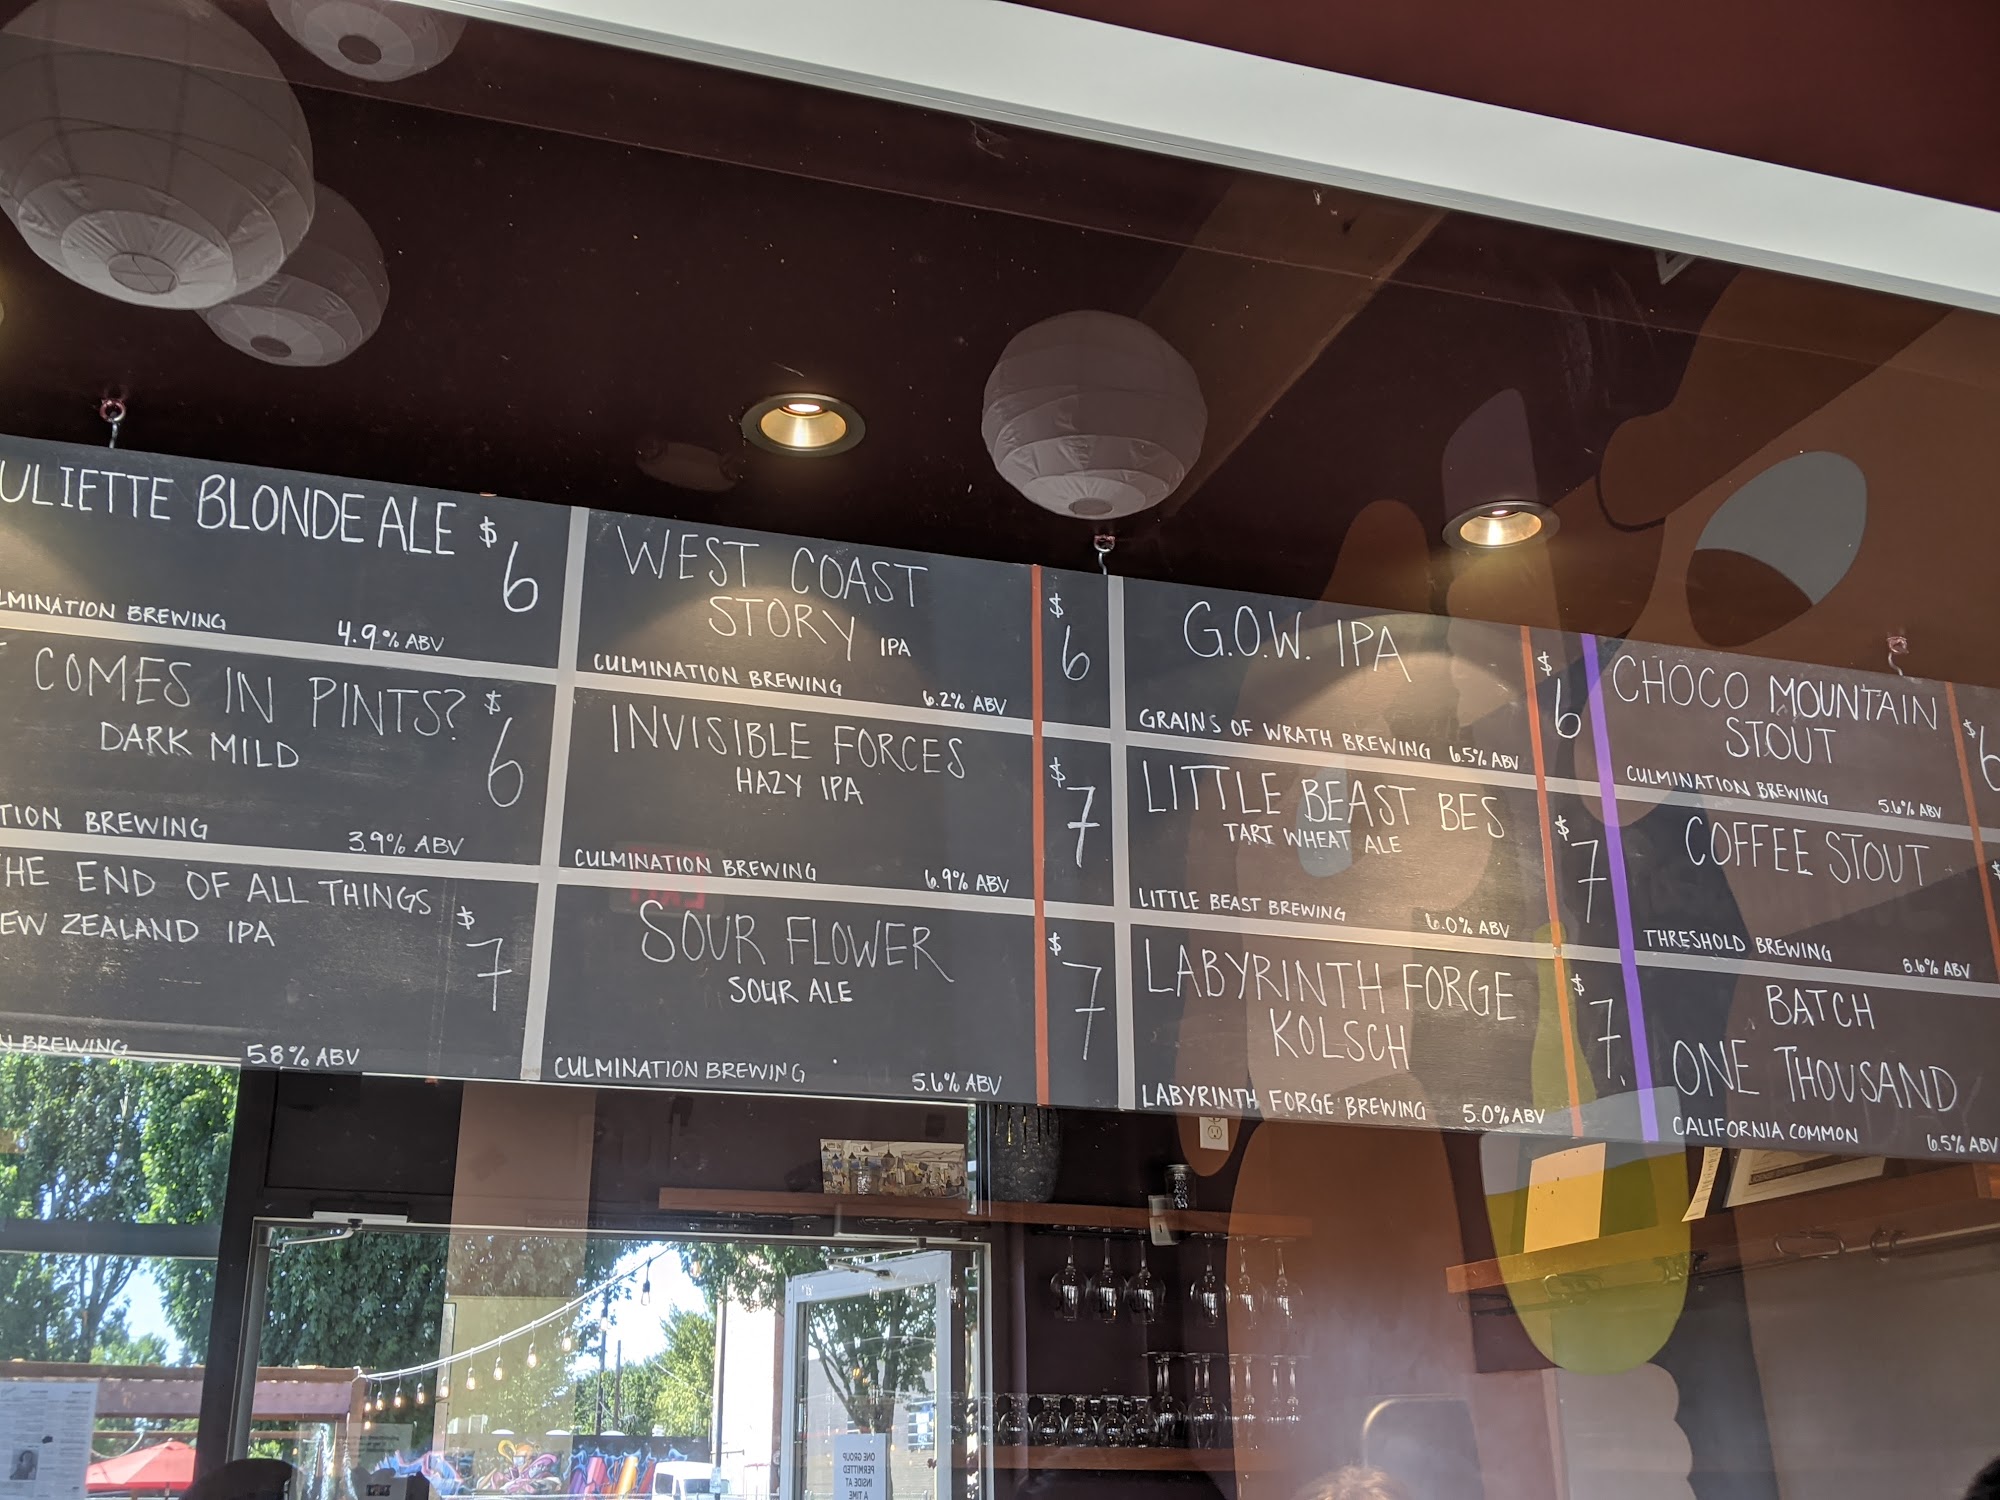 ULIETTE BLONDE ALE $6
LMINATION BREWING 4.9% ABV
COMES IN PINTS? $6
DARK MILD
TION BREWING 3.9% ABV
HE END OF ALL THINGS $7
EW ZEALAND IPA
N BREWING 5.8% ABV
WEST COAST
STORY IPA $6
CULMINATION BREWING 6.2% ABV
INVISIBLE FORCES $7
HAZY IPA
CULMINATION BREWING 6.9% ABV
SOUR FLOWER $7
SOUR ALE
CULMINATION BREWING 5.6% ABV
G.O.W. IPA $6
GRAINS OF WRATH BREWING 6.5% ABV
LITTLE BEAST BES $7
TART WHEAT ALE
LITTLE BEAST BREWING 6.0% ABV
LABYRINTH FORGE $7
KOLSCH
LABYRINTH FORGE BREWING 5.0% ABV
CHOCO MOUNTAIN $6
STOUT
CULMINATION BREWING 5.6% ABV
COFFEE STOUT $
THRESHOLD BREWING 8.6% ABV
BATCH
ONE THOUSAND
CALIFORNIA COMMON 6.5% ABV
EXIT
ONE GROUP
PERMITTED
INSIDE AT
A TIME